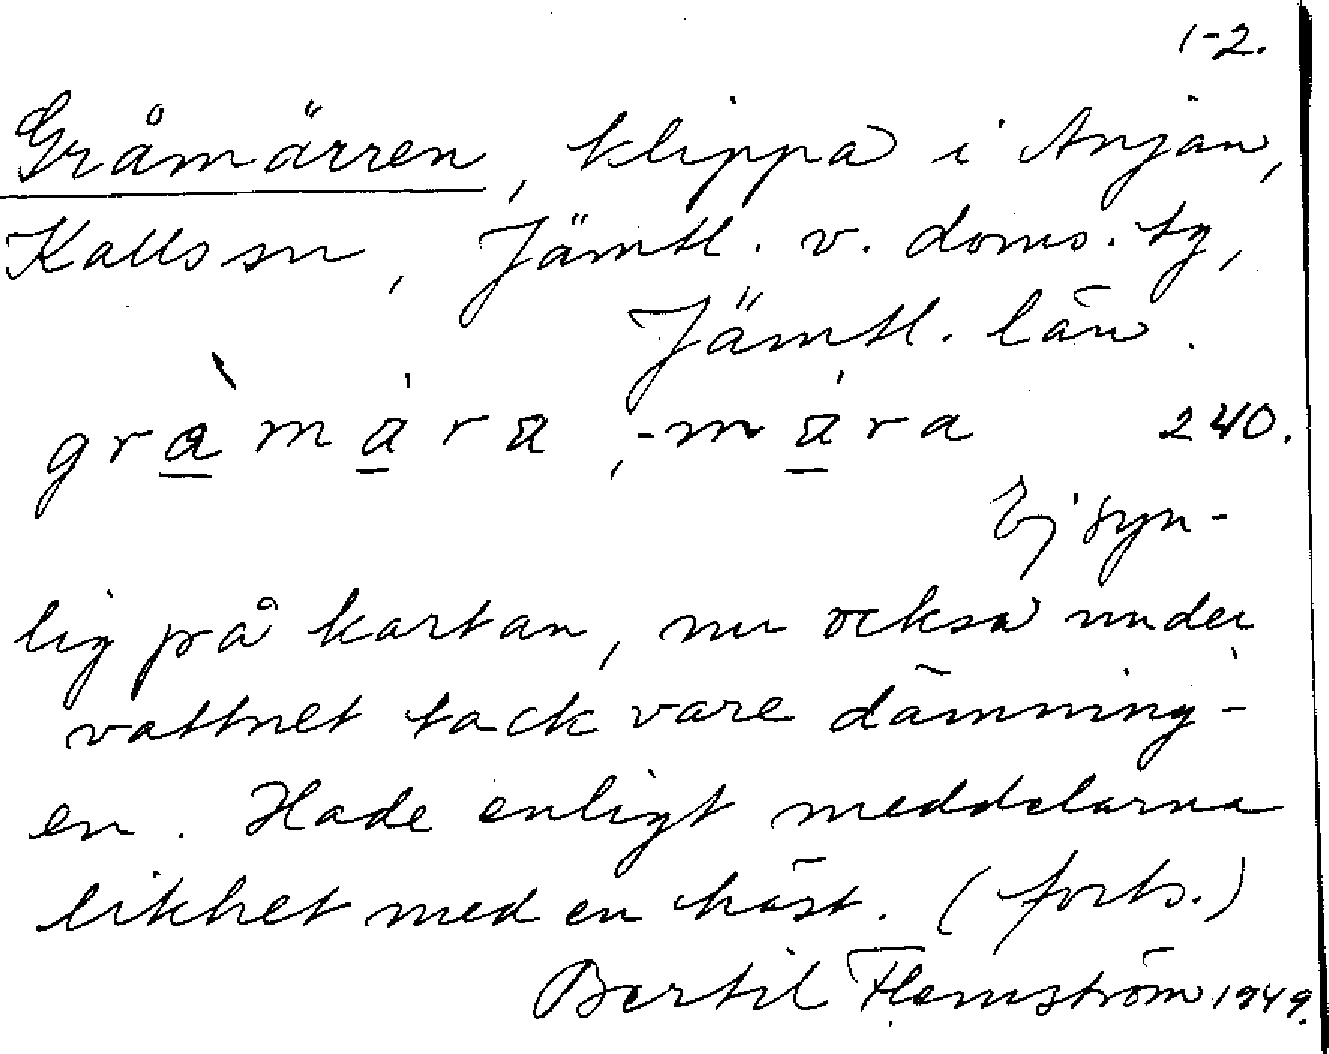 1-2.
Gråmärren, klippa i Anjan,
Kalls sn, Jämtl. v. doms. tg,
Jämtl. län.
grà̱ma̱̍ra, -ma̱̍ra 240.
Ej syn-
lig på kartan, nu också under
vattnet tack vare dämning-
en. Hade enligt meddelarna
likhet med en häst. (forts.)
Bertil Flemström 1949.